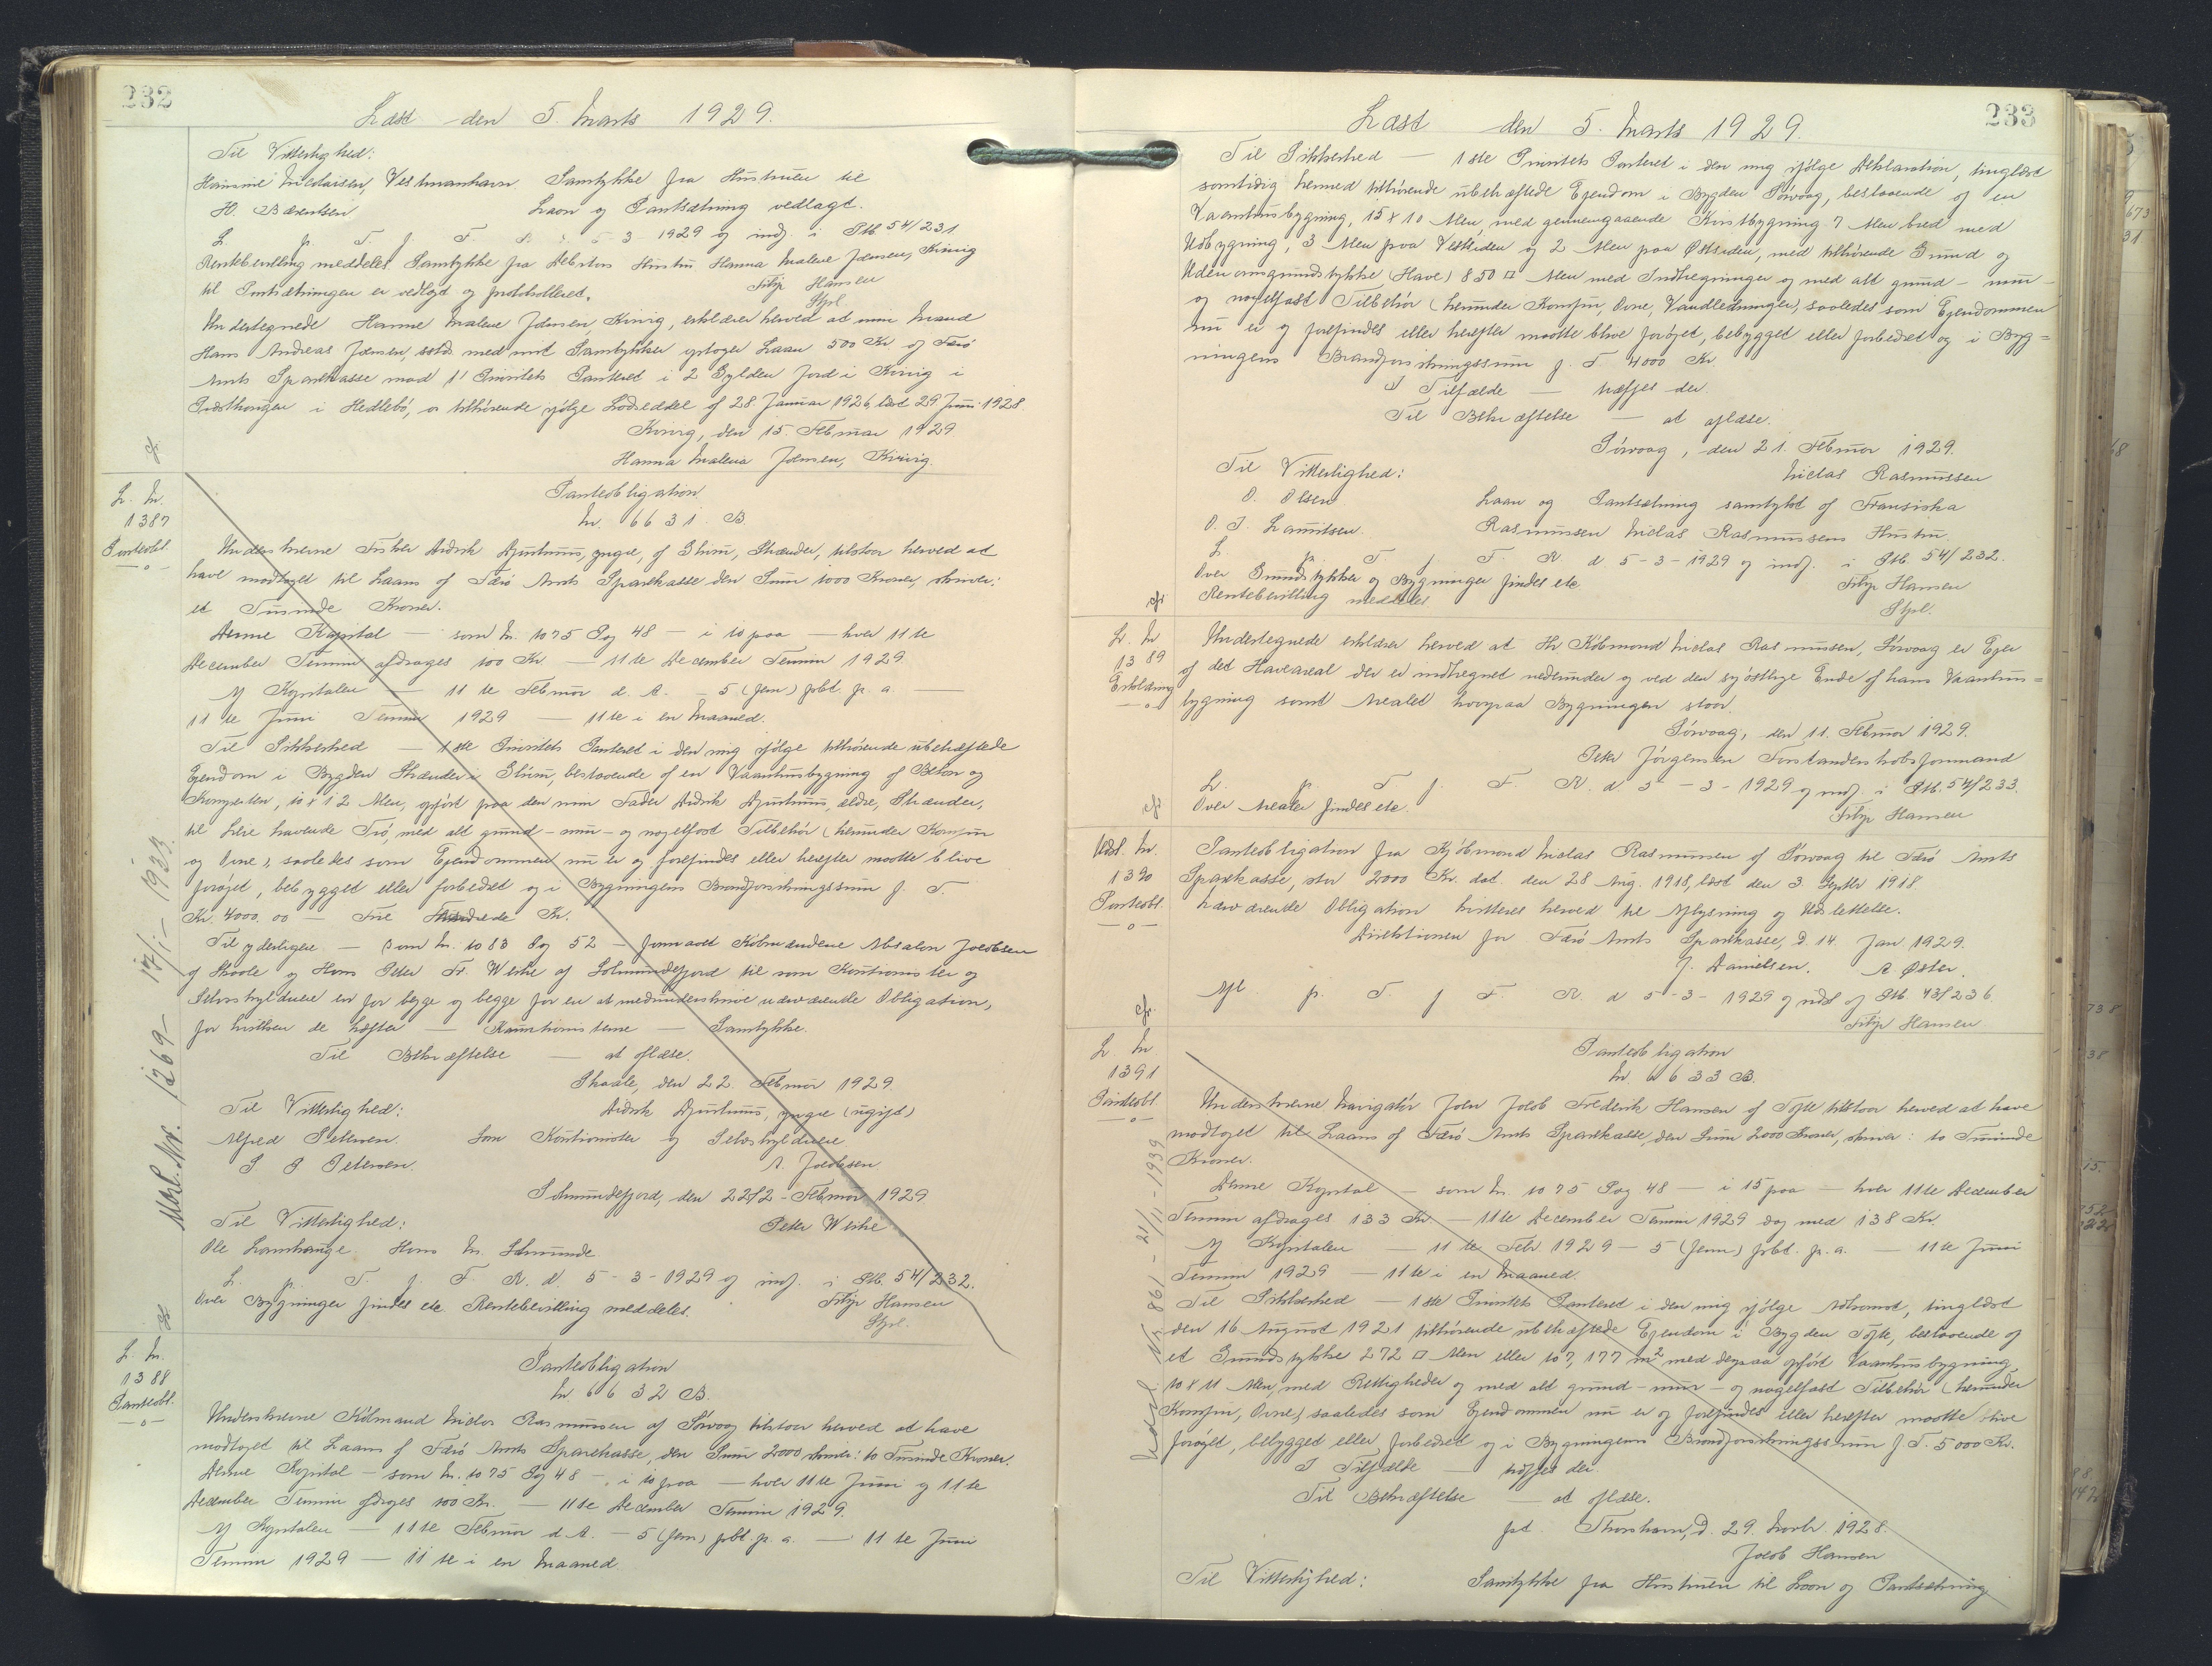 232
Læst den 5. Marts 1929.
Til Vitterlighed:
Vestmanhavn. Samtykke fra Hustruen til
H. Bærentsen Laan og Pantsætning vedlagt.
L. p. T. f. F. R. d. 5-3-1929 og indf. i Ptb 54/231
Rentebevilling meddeles Samtykke fra Debitors Hustru Hanna Malene Joensen, Kvivig
til Pantsætningen er vedlagt og protokolleret. Filip Hansen
Stpl.
Undertegnede Hanne Malene Joensen, Kvivig, erklærer herved at min Mand
Hans Andreas Joensen, sstds. med mit Samtykke optager Laan 500 Kr. af Færø
Amts Sparekasse mod 1' Prioritets Panteret i 2 Gylden Jord i Kvivig i
i Hedlebö, os tilhørende ifølge Lodseddel af 28. Januar 1926, læst 29 Juni 1928.
Kvivig, den 15. Februar 1929.
Hanna Malena Joensen, Kvivig.
cfr
L. Nr.
1387
Panteobl.
—o—
Panteobligation
Nr. 6631 B.
Underskrevne Fisker Didrik Djurhuus, yngre, af Glivur, Strænder, tilstaar herved at
have modtaget til Laans af Færø Amts Sparekasse den Sum 1000 Kroner, skriver:
et Tusinde Kroner.
Denne Kapital — som Nr. 1075 Pag 48 — i 10 paa — hver 11te
December Termin afdrages 100 Kr. — 11te December Termin 1929.
Af Kapitalen — 11te Februar d. A. — 5 (fem) pCt. p. a. —
11te Juni Termin 1929 — 11te i en Maaned.
Til Sikkerhed — 1ste Prioritets Panteret i den mig ifølge tilhørende ubehæftede
Ejendom i Bygden Strænder i Glivur, bestaaende af en Vaaningshusbygning af Beton og
10 x 12 Alen, opført paa den min Fader Didrik Djurhuus, ældre, Strænder,
til Leie havende Trø, med alt grund- mur- og nagelfast Tilbehør (herunder Komfur
og Ovne), saaledes som Ejendommen nu er og forefindes eller herefter maatte blive
forøget, bebygget eller forbedret og i Bygningens Brandforsikringssum f. T.
Kr. 4000.00 — Fire Kr.
Til yderligere — som Nr. 1083 Pag 52 — formaaet Købmændene Absalon Joensen
af Skaale og Hans Peter Fr. Weihe af Solmundefjord til som Kautionister og
Selvskyldnere en for begge og begge for en at medunderskrive nærværende Obligation,
for hvilken de hæfter — Kautionisterne — Samtykke.
Til Bekræftelse — at aflæse.
Skaale, den 22. Februar 1929.
Til Vitterlighed: Didrik Djurhuus, yngre (ugift)
Alfred Petersen. Som Kautionister og Selvskyldnere
S P Petersen. A. Jacobsen
Solmundefjord, den 22/2 - Februar 1929
Til Vitterlighed: Peter Weihe
Ole Lamhauge. Hans M. Solmunde
L. p. T. f. F. R. d. 5-3-1929 og indf. i Ptb. 54/232.
Over Bygningen findes etc. Rentebevilling meddeles. Filip Hansen
Stpl.
Udsl. Nr. 1269 - 17/1 - 1933.
cfr
L. Nr.
1388
Panteobl.
—o—
Panteobligation
Nr 6632 B.
Underskrevne Købmand Niclas Rasmussen af Sørvaag tilstaar herved at have
modtaget til Laans af Færø Amts Sparekasse, den Sum 2000 skriver: to Tusinde Kroner.
Denne Kapital — som Nr. 1075 Pag 48 — i 10 paa — hver 11te Juni og 11te
December Termin afdrages 100 Kr. — 11te December Termin 1929.
Af Kapitalen — 11te Februar d. A. — 5 (fem) pCt. p. a. — 11te Juni
Termin 1929 — 11te i en Maaned.
233
Læst den 5. Marts 1929.
Til Sikkerhed — 1ste Prioritets Panteret i den mig ifølge Deklaration, tinglæst
samtidig hermed tilhørende ubehæftede Ejendom i Bygden Sørvaag, bestaaende af en
Vaanhusbygning, 15 x 10 Alen, med gennemgaaende Kvistbygning 7 Alen bred med
Udbygning, 3 Alen paa Vestsiden og 2 Alen paa Østsiden, med tilhørende Grund og
Udenomsgrundstykke (Have) 850 □ Alen med Indhegninger og med alt grund- mur-
og nagelfast Tilbehør (herunder Komfur, Ovne, Vandledninger), saaledes som Ejendommen
nu er og forefindes eller herefter maatte blive forøget, bebygget eller forbedret og i Byg=
ningens Brandforsikringssum f. T 4000 Kr.
I Tilfælde — træffes der.
Til Bekræftelse — at aflæse.
Sørvaag, den 21. Februar 1929.
Til Vitterlighed: Niclas Rasmussen
O. Olsen Laan og Pantsætning samtykt af Fransiska
O. J. Lauritsen. Rasmussen Niclas Rasmussens Hustru.
L p. T f. F. R d 5-3-1929 og indf. i Ptb 54/232.
Over Grundstykket og Bygninger findes etc. Filip Hansen
Rentebevilling meddeles. Stpl.
cfr
L. Nr
1389
Erklæring
—o—
Undertegnede erklærer herved at Hr Købmand Niclas Rasmussen, Sørvaag er Ejer
af det Haveareal der er indhegnet nedenunder og ved den syöstlige Ende af hans Vaanhus=
bygning samt Arealet hvorpaa Bygningen staar.
Sørvaag, den 11. Februar 1929.
Peter Jørgensen Forstanderskabsformand
L. p. T f. F. R. d 5-3-1929 og indf. i Ptb. 54/233.
Over Arealer findes etc. Filip Hansen
cfr
Udsl. Nr.
1390
Panteobl.
—o—
Panteobligation fra Kjöbmand Niclas Rasmussen af Sørvaag til Færø Amts
Sparekasse, stor 2000 Kr. dat. den 28 Aug. 1918, læst den 3. Septbr 1918.
Nærværende Obligation kvitteres herved til Aflysning og Udslettelse.
Direktionen for Færø Amts Sparekasse, D. 14. Jan. 1929.
J. Danielsen. A Øster.
Afl. p. T. f F. R. d 5-3-1929 og udsl af Ptb. 43/236.
Filip Hansen
cfr.
L Nr
1391
Panteobl.
—o—
Panteobligation
Nr. 6633 B.
Underskrevne Navigatör Joen Jakob Frederik Hansen af Tofte tilstaar herved at have
modtaget til Laans af Færø Amts Sparekasse, den Sum 2000 Kroner, skriver: to Tusinde
Kroner.
Denne Kapital — som Nr. 1075 Pag. 48 — i 15 paa — hver 11te December
Termin afdrages 133 Kr. — 11te December Termin 1929 dog med 138 Kr.
Af Kapitalen — 11te Febr 1929 — 5 (fem) pCt. p. a. — 11te Juni
Termin 1929 — 11te i en Maaned.
Til Sikkerhed — 1ste Prioritets Panteret i den mig ifølge Adkomst, tinglæst
den 16 August 1921 tilhørende ubehæftede Ejendom i Bygden Tofte, bestaaende af
et Grundstykke 272 □ Alen eller 107,177 m² med derpaa opført Vaanhusbygning
10 x 11 Alen, med Rettigheder og med alt grund- mur- og nagelfast Tilbehør (herunder
Komfur, Ovne) saaledes som Ejendommen nu er og forefindes eller herefter maatte blive
forøget, bebygget eller forbedret og i Bygningens Brandforsikringssum f. T. 5000 Kr.
I Tilfælde — træffes der.
Til Bekræftelse — at aflæse.
pt. Thorshavn, D. 29. Novbr. 1928.
Jacob Hansen
Til Vitterlighed: Samtykke fra Hustruen til Laan og Pantsætning
Udsl. Nr 861 - 21/11 - 1939